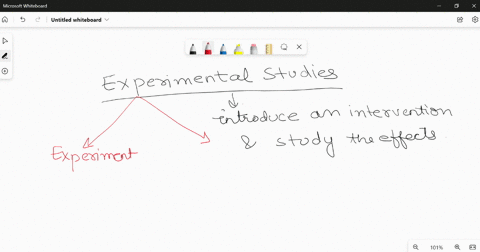 Microsoft Whiteboard
Untitled whiteboard
Experimental Studies
introduce an intervention
& study the effects.
Experiment
101%